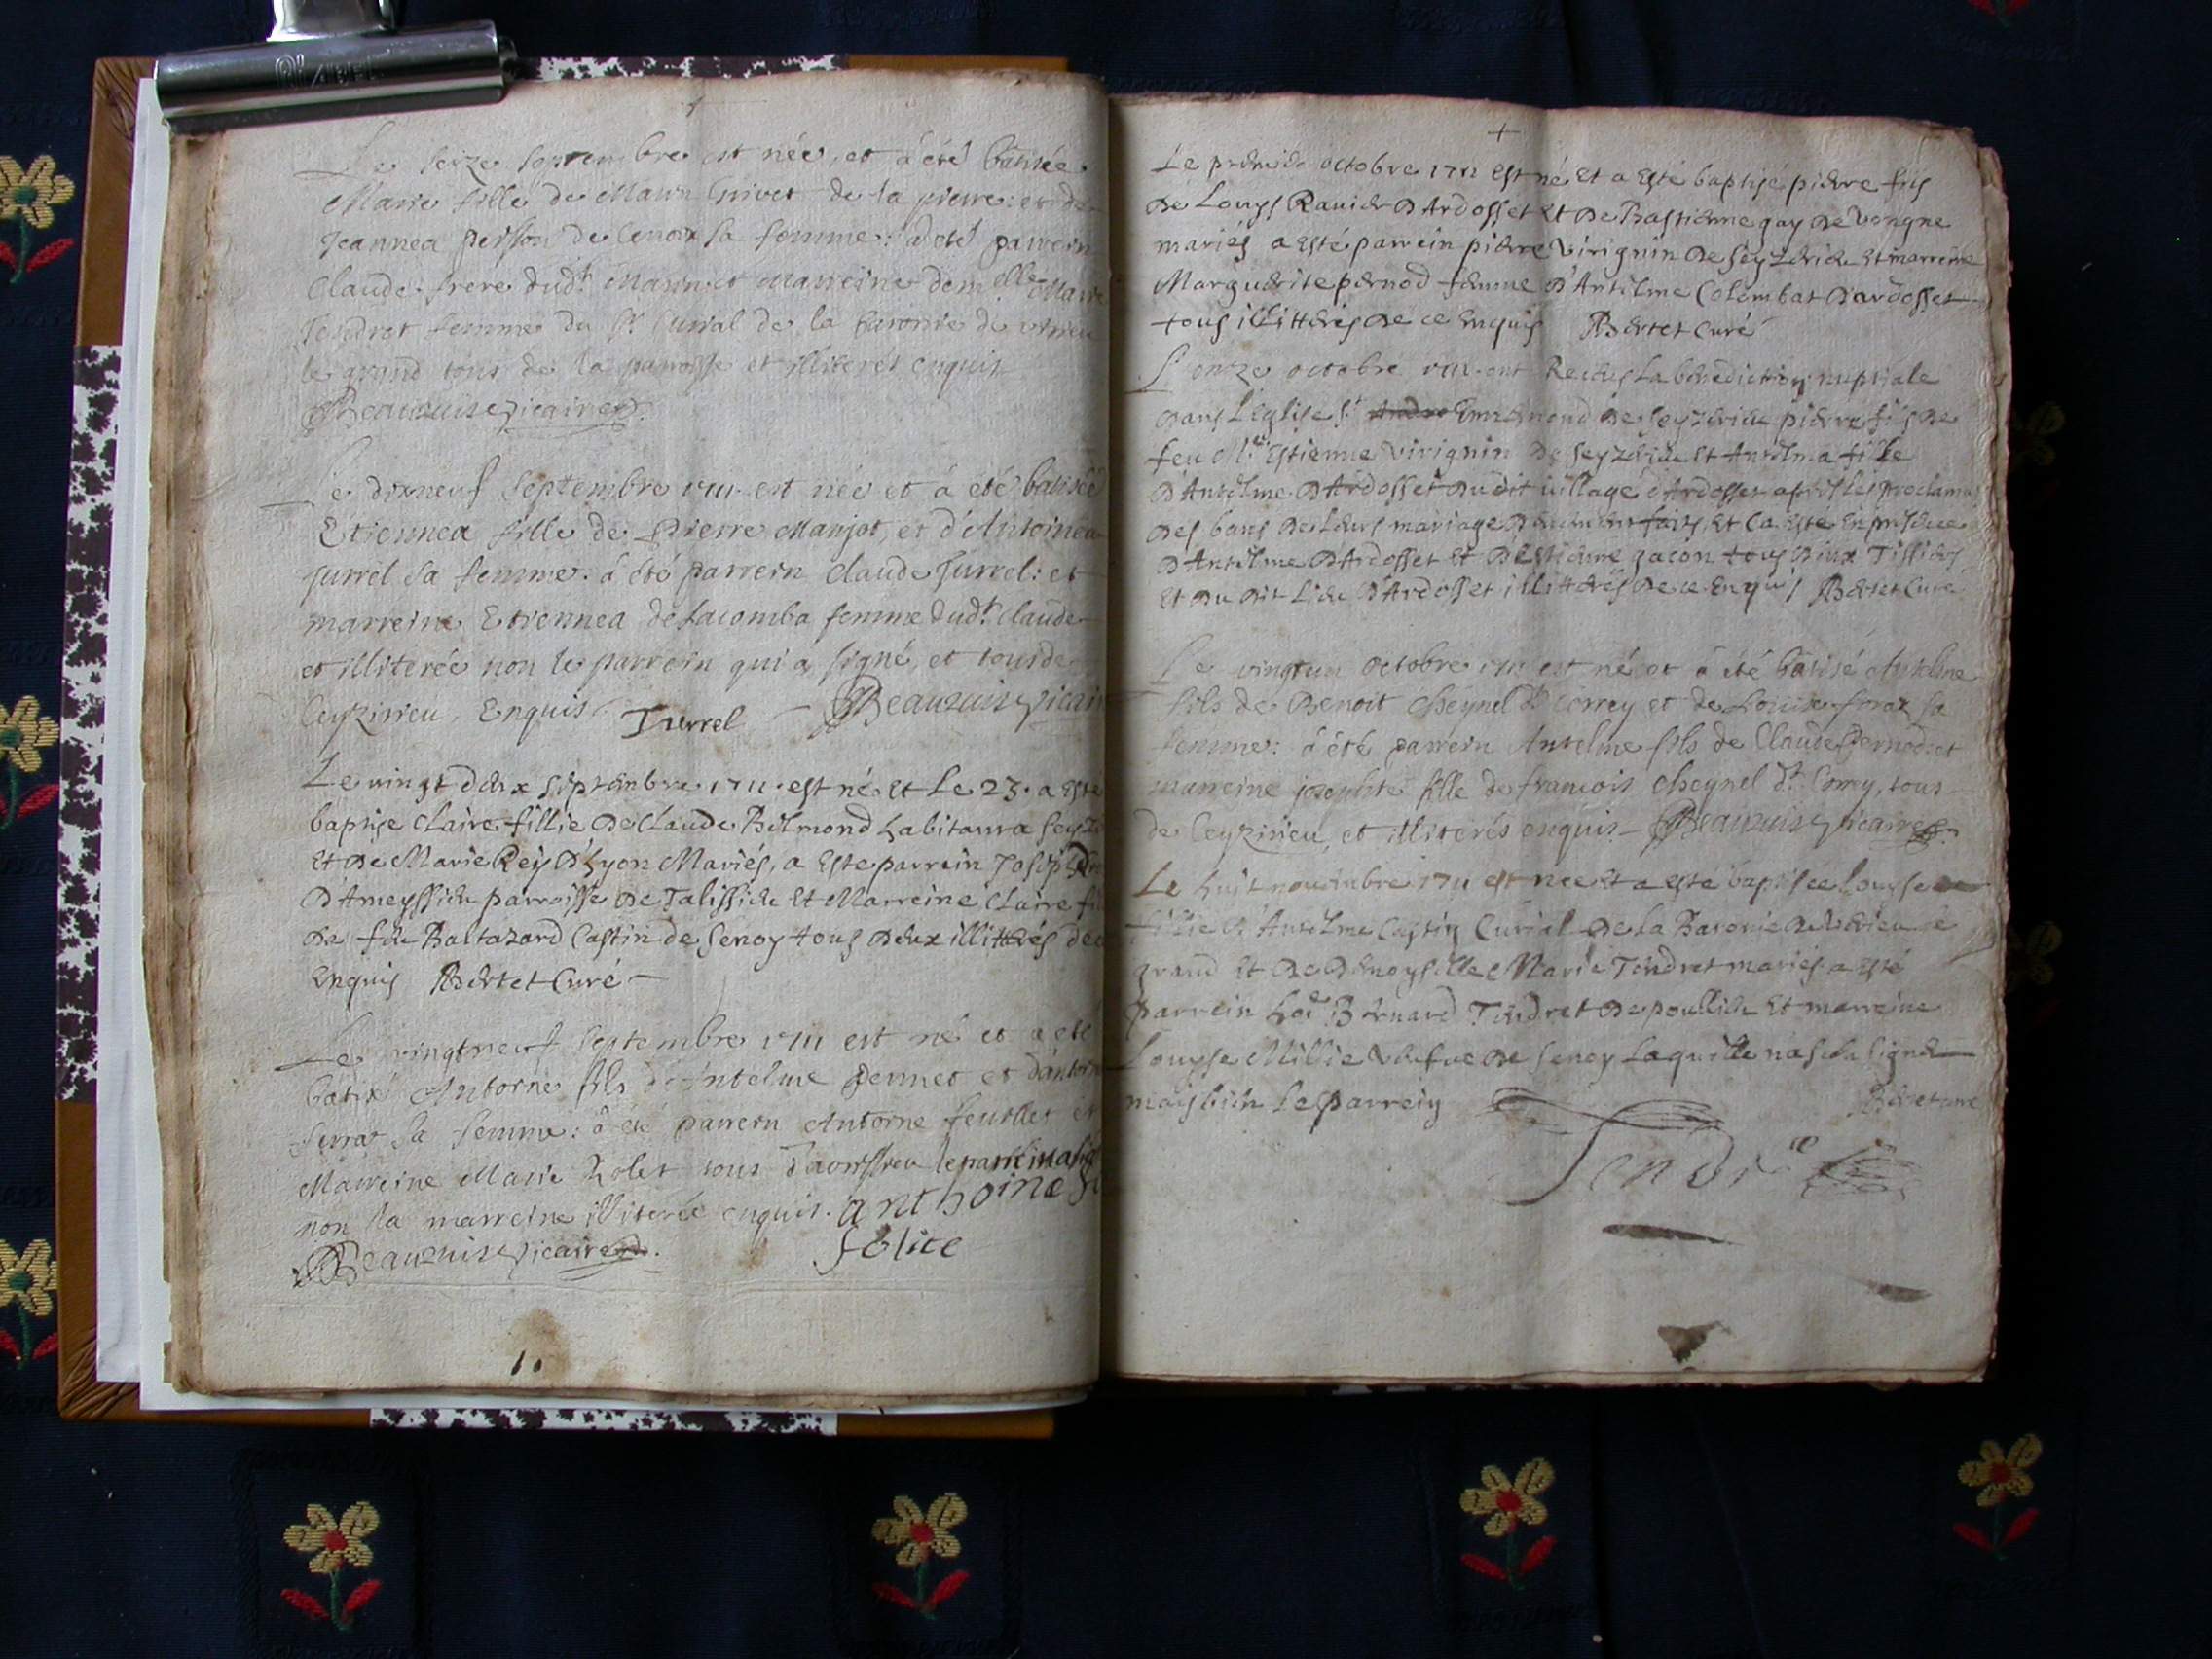 Le seize septembre est née, et à été batisée
Marie fille de Marin Grivet de la pierre: et de
Jeannea person de lenoix sa femme: à eté parrein
Claude frere dud.t Marin: et Marreine dem.elle Marie
Tendret femme du Sr. Curial de la baronie de virieu
le grand tous de la paroisse et illiterés enquis
Beauzuis vicaire
Le dixneuf Septembre 1711 est née et à été batisée
Etiennea fille de Pierre Manjot, et d'Antoinea
Jurrel sa femme. à été parrein Claude Jurrel: et
marreine Etiennea de Lacomba femme dud.t Claude
et illiterée non le parrein qui a signé, et tous de
Ceyzirieu, Enquis Jurrel Beauzuis vicair
Le vingt deux septembre 1711 est né et Le 23. a esté
baptise Claire fillie de Claude Belmond habitant a Seyz
Et de Marie Rey d'Lyon Mariés, a Este parrein Joseph
D'Ameyssieu parroisse de Talissieu Et Marreine Claire fi
de feu Baltazard Castin de Senoy tous deux illittérés de
Enquis Bertet Curé
Le vingtneuf Septembre 1711 est né et a eté
batisé Antoine fils d'Antelme pennet et d'antoi
serrat sa femme: à été parrein Antoine feuillet et
Marreine Marie Rolet tous d'avrissieu le parrein a sig
non la marreine illiterée enquis. anthoine f
Beauzuis vicaire. folice
1.
+
Le premier octobre 1711 est né Et a Esté baptisé pierre fils
de Louys Ravier d'Ardosset Et de Bastienne gay de Vongne
mariés a Esté parrein pierre Virignin de Seyzerieu Et marreine
Marguerite pernod femme d'Antelme Colombat d'ardosset
tous illitterés de ce Enquis Bertet Curé
L'onze octobre 1711 ont Receus La benediction nuptiale
dans L'Eglise St Andre Ennemond de Seyzerieu pierre fils de
feu M.re Estienne Virignin de Seyzerieu et Antelma fille
d'Antelme d'Ardosset dudit village d'Ardosset apres Les proclama
des bans de Leurs mariage deuement faits, Et Ca Esté En presence
d'Antelme d'Ardosset Et d'Estienne jacon tous deux Tissiers
Et du dit Lieu d'Ardosset illittérés de ce Enquis Bertet Curé
Le vingtun octobre 1711 est né et à été batisé Antelme
fils de Benoit Cheynel dt Correy et de Louise forax sa
femme: à été parrein Antelme fils de Claude Pernod: et
marreine josephte fille de françois Cheynel dt Correy, tous
de Ceyzirieu, et illiterés enquis Beauzuis vicaire
Le huit novembre 1711 est née Et a esté baptisée Louyse
fillie d'Antelme Castin Curial de La Baronie de Virieu le
grand Et de Demoyselle Marie Tendret mariés a Esté
parrein hon Bernard Tendret de poullieu Et marreine
Louyse Millie Veufue de Senoy Laquelle na sceu signer
mais bien Le parrein Bertet curé
Tendret